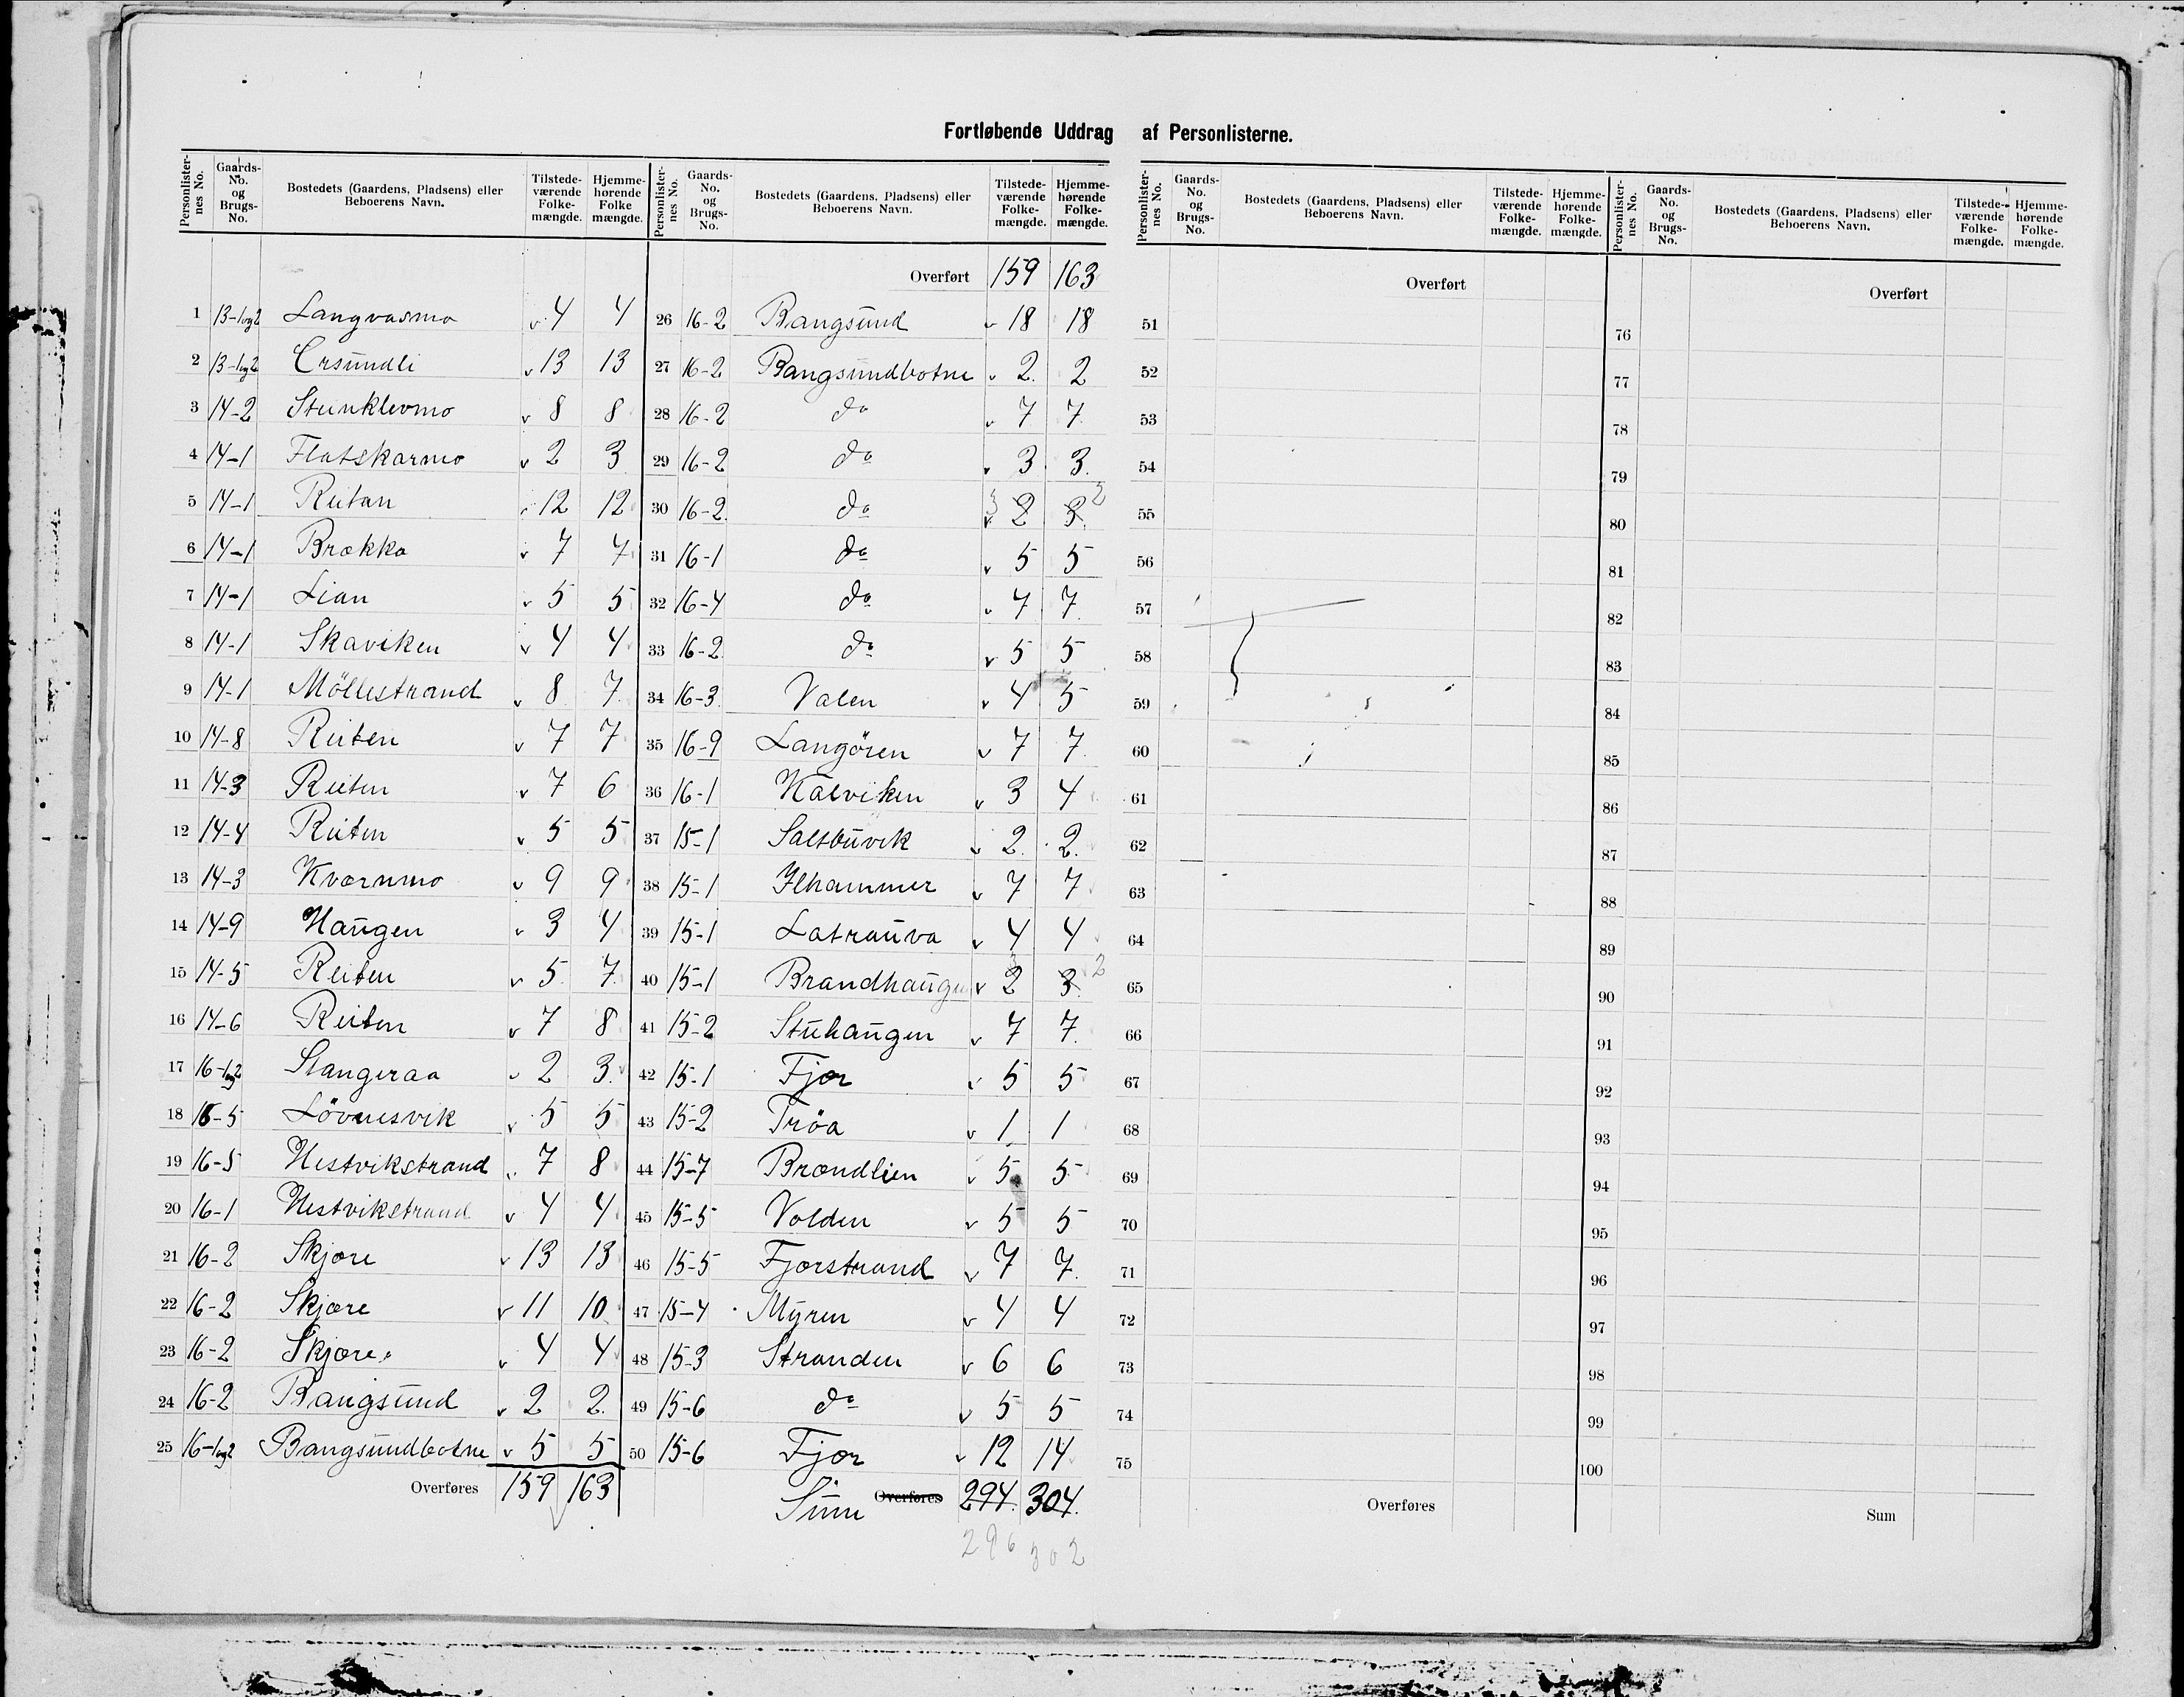 Fortløbende Uddrag af Personlisterne.
Personlister-nes No. Gaards-No. og Brugs-No. Bostedets (Gaardens, Pladsens) eller Beboerens Navn. Tilstede-værende Folke-mængde. Hjemme-hørende Folke mængde.
1 13-1og2 Langvasmo v 4 4
2 13-1og2 Ersundli v 13 13
3 14-2 Steinklevmo v 8 8
4 14-1 Flatskarmo v 2 3
5 14-1 Reitan 12 12
6 14-1 Brækka v 7 7
7 14-1 Lian v 5 5
8 14-1 Skaviken v 4 4
9 14-1 Möllestrand v 8 7
10 14-8 Reiten v 7 7
11 14-3 Reiten v 7 6
12 14-4 Reiten v 5 5
13 14-3 Kværnmo v 9 9
14 14-9 Haugen v 3 4
15 14-5 Reiten v 5 7
16 14-6 Reiten v 7 8
17 16-1og2 Slangeraa v 2 3
18 16-5 Lövnesvik v 5 5
19 16-5 Hestvikstrand v 7 8
20 16-1 Hestvikstrand v 4 4
21 16-2 Skjære v 13 13
22 16-2 Skjære v 11 10
23 16-2 Skjære v 4 4
24 16-2 Bangsund v 2 2
25 16-1og2 Bangsundbotne v 5 5
Overføres 159 163
Personlister-nes No. Gaards-No. og Brugs-No. Bostedets (Gaardens, Pladsens) eller Beboerens Navn. Tilstede-værende Folke-mængde. Hjemme-hørende Folke-mængde.
Overført 159 163
26 16-2 Bangsund v 18 18
27 16-2 Bangsundbotne v 2 2
28 16-2 do v 7 7
29 16-2 do v 3 3
30 16-2 do v 3 2 3 2
31 16-1 do v 5 5
32 16-4 do v 7 7
33 16-2 do v 5 5
34 16-3 Valen v 4 5
35 16-9 Langören v 7 7
36 16-1 Kalviken v 3 4
37 15-1 Saltbuvik v 2 2
38 15-1 Ilhammer v 7 7
39 15-1 Latrauva v 4 4
40 15-1 Brandhaugen v 3 2 3 2
41 15-2 Stuhaugen v 7 7
42 15-1 Fjær v 5 5
43 15-2 Tröa v 1 1
44 15-7 Brændlien v 5 5
45 15-5 Volden v 5 5
46 15-5 Fjærstrand v 7 7
47 15-4 Myren v 4 4
48 15-3 Stranden v 6 6
49 15-6 do v 5 5
50 15-6 Fjær v 12 14
Sum Overføres 294 304
296 302
Personlister-nes No. Gaards-No. og Brugs-No. Bostedets (Gaardens, Pladsens) eller Beboerens Navn. Tilstede-værende Folke-mængde. Hjemme-hørende Folke-mængde.
Overført
51
52
53
54
55
56
57
58
59
60
61
62
63
64
65
66
67
68
69
70
71
72
73
74
75
Overføres
Personlister-nes No. Gaards-No. og Brugs-No. Bostedets (Gaardens, Pladsens) eller Beboerens Navn. Tilstede-værende Folke-mængde. Hjemme-hørende Folke-mængde.
Overført
76
77
78
79
80
81
82
83
84
85
86
87
88
89
90
91
92
93
94
95
96
97
98
99
100
Sum